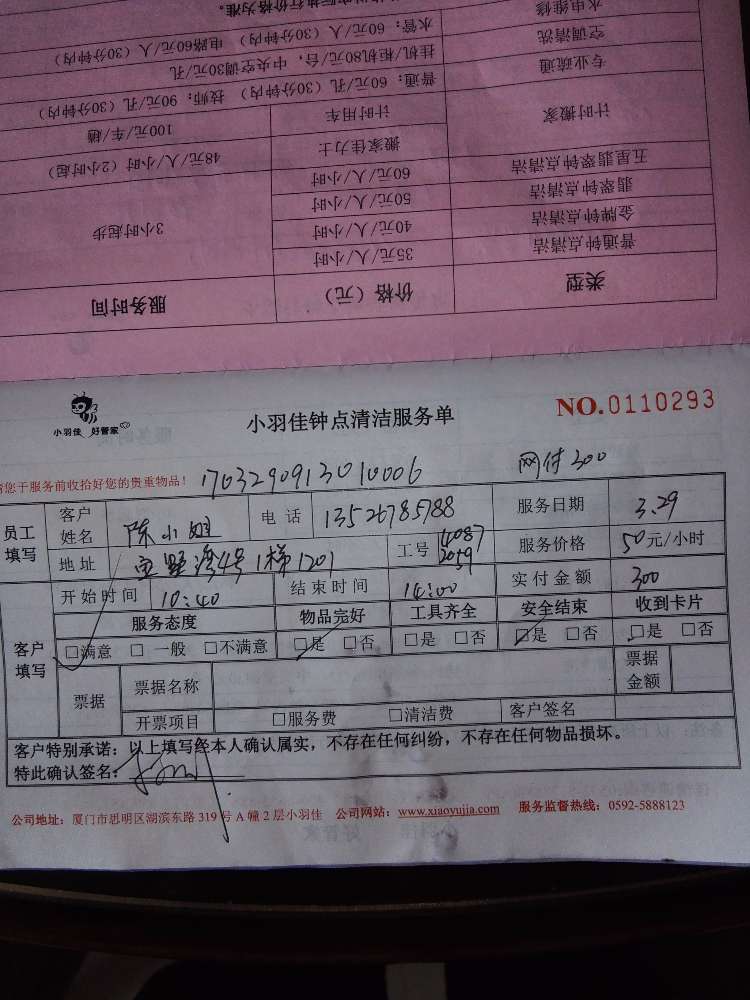 水电维修 水管：60元/人（30分钟内） 电路60元/人（30分钟内）
空调清洗 挂机/柜机80元/台，中央空调30元/孔
专业疏通 普通：60元/孔（30分钟内） 技师：90元/孔（30分钟内）
计时搬家 计时用车 100元/车/趟
搬家佳力士 48元/人/小时（2小时起）
五星翡翠钟点清洁 60元/人/小时
翡翠钟点清洁 50元/人/小时
金牌钟点清洁 40元/人/小时 3小时起步
普通钟点清洁 35元/人/小时
类型 价格（元） 服务时间
小羽佳 好管家
小羽佳钟点清洁服务单
NO.0110293
请您于服务前收拾好您的贵重物品！ 1703290913010006 网付300
员工填写 客户姓名 陈小姐 电话 13526785788 服务日期 3.29
地址 4号1梯1201 工号 14087 2059 服务价格 50元/小时
开始时间 10:40 结束时间 14:00 实付金额 300
客户填写 服务态度 物品完好 工具齐全 安全结束 收到卡片
□满意 □一般 □不满意 □是 □否 □是 □否 □是 □否 □是 □否
票据 票据名称 票据金额
开票项目 □服务费 □清洁费 客户签名
客户特别承诺：以上填写经本人确认属实，不存在任何纠纷，不存在任何物品损坏。
特此确认签名：
公司地址：厦门市思明区湖滨东路319号A幢2层小羽佳 公司网站：www.xiaoyujia.com 服务监督热线：0592-5888123